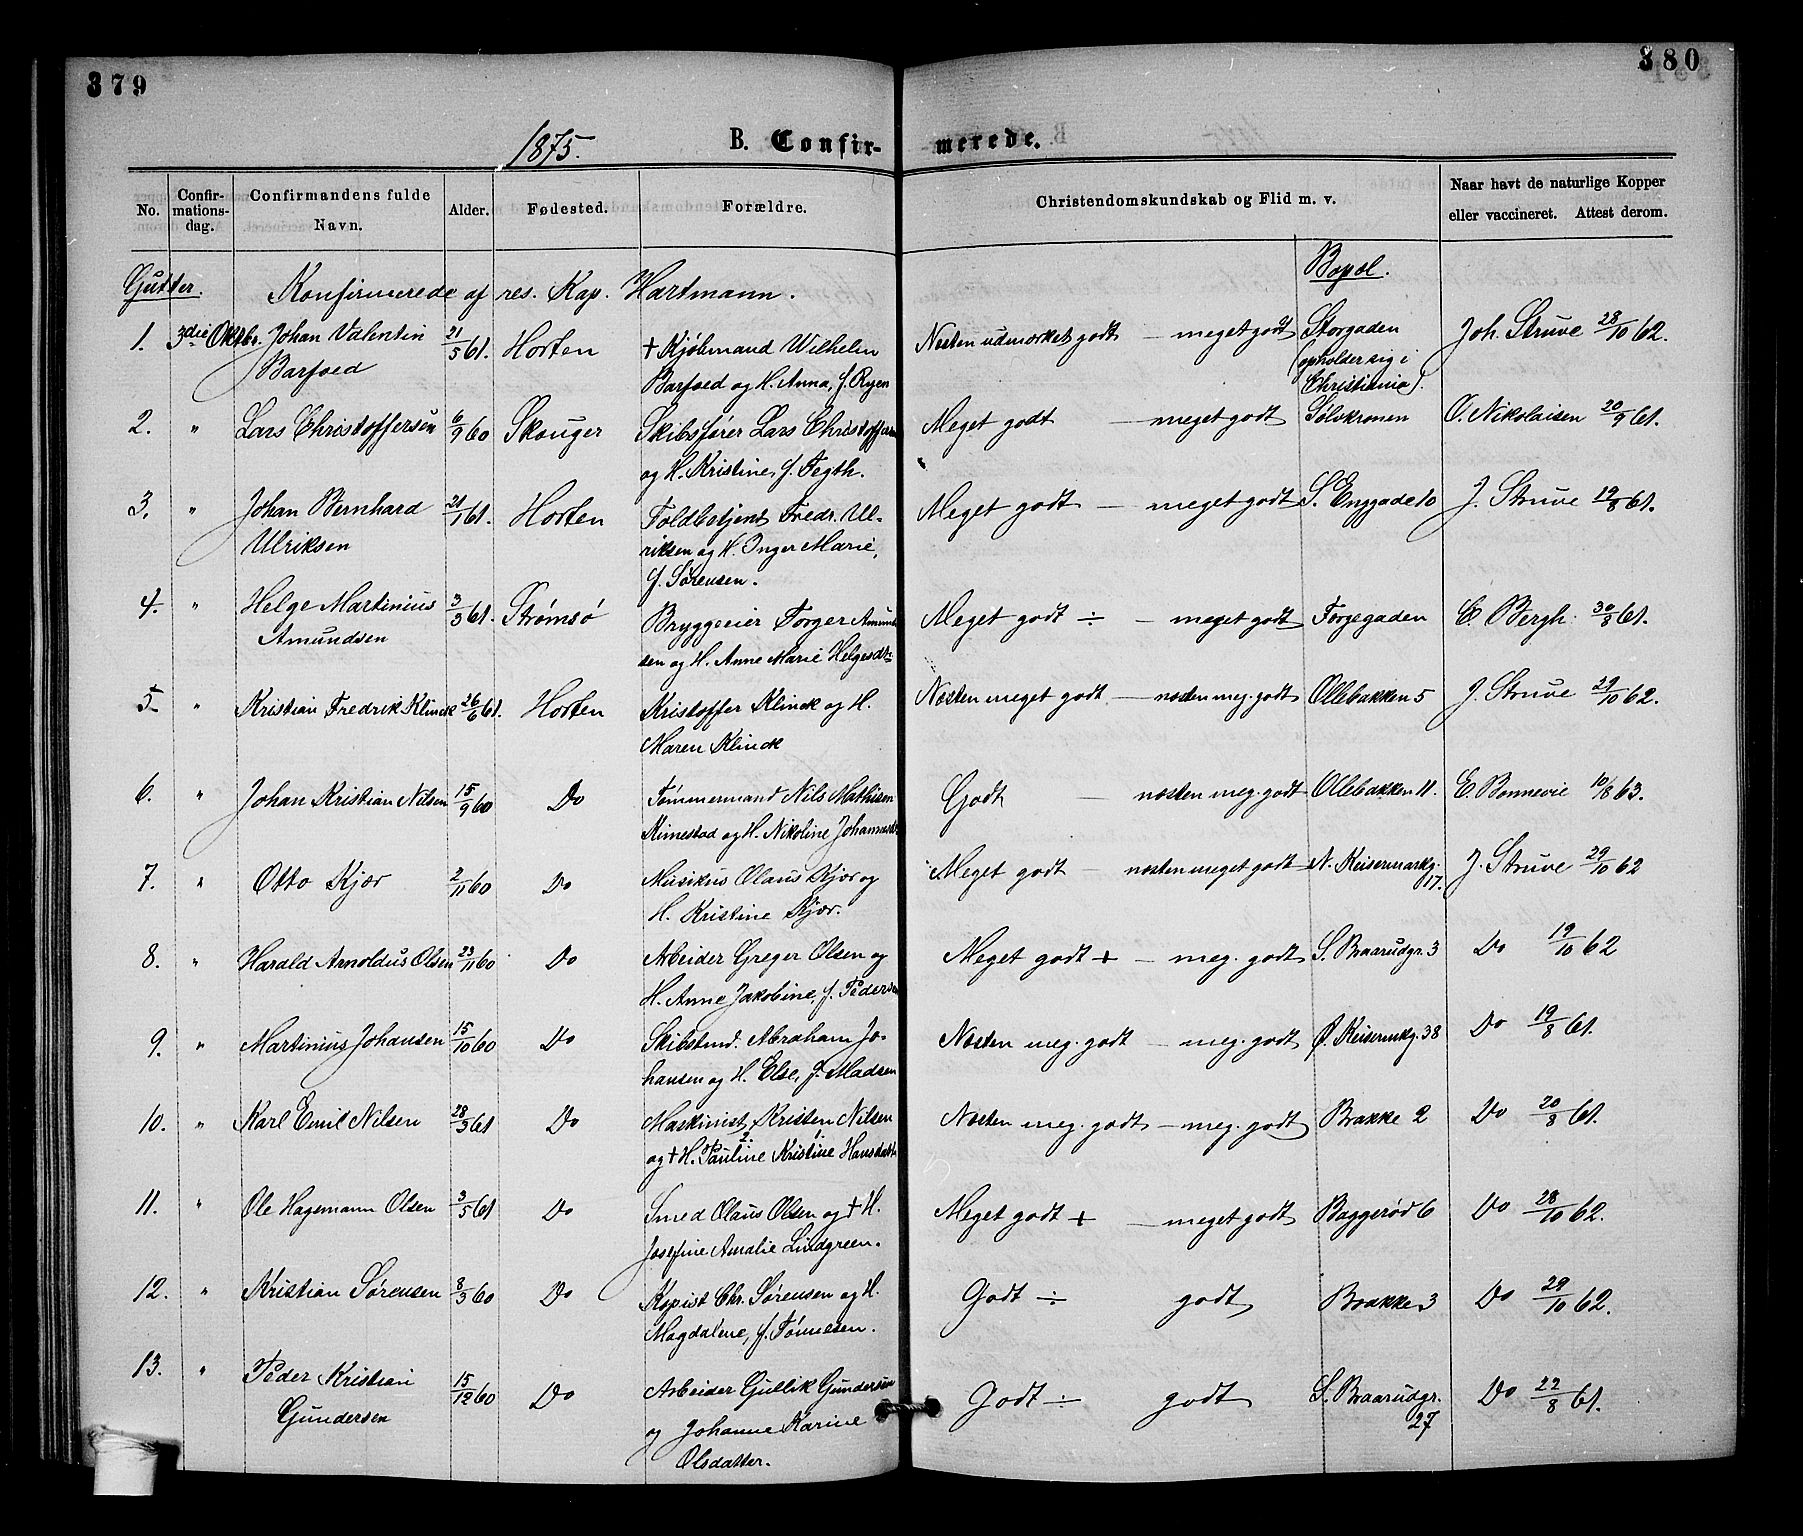 379
380
1875.
B. Confir-
merede.
No.
Confir-
mations-
dag.
Confirmandens fulde
Navn.
Alder.
Fødested.
Forældre.
Christendomskundskab og Flid m. v.
Naar havt de naturlige Kopper
eller vaccineret. Attest derom.
Gutter.
Konfirmerede af res. Kap. Hartmann.
Bopæl.
1. 3die Oktbr. Johan Valentin 21/5 61. Horten † Kjøbmand Wilhelm Næsten udmærket godt — meget godt Storgaden Joh. Struve 28/10 62.
Barfoed Barfoed og H. Anna, f. Ryen (opholder sig i
Christiania).
2. " Lars Christoffersen 6/9 60 Skouger Skibsfører Lars Christoffersen Meget godt — meget godt Sølvkronen O. Nikolaisen 20/9 61.
og H. Kristine, f. Tegth.
3. " Johan Bernhard 21/1 61. Horten Toldbetjent Fredr. Ul- Meget godt — meget godt S. Enggade 10 J. Struve 19/8 61.
Ulriksen riksen og H. Inger Marie,
f. Sørensen.
4. " Helge Martinius 3/3 61. Strømsø Bryggeeier Torger Amund- Meget godt ÷ — meget godt Torgegaden C. Bergh. 30/8 61.
Amundsen sen og H. Anne Marie Helgesdtr
5. " Kristian Fredrik Klinck 26/6 61. Horten Kristoffer Klinck og H. Næsten meget godt — næsten meg. godt Ollebakken 5 J. Struve 29/10 62.
Maren Klinck
6. " Johan Kristian Nilsen 15/9 60 Do Tømmermand Nils Mathisen Godt — næsten meg. godt Ollebakken 11. E. Bonnevie 10/8 63.
Kimestad og H. Nikoline Johannesdt
7. " Otto Kjær 2/11 60 Do Musikus Olaus Kjær og Meget godt — næsten meget godt N. Keisermarkg. J. Struve 29/10 62
H. Kristine Kjær. 17.
8. " Harald Arnoldus Olsen 23/11 60 Do Arbeider Greger Olsen og Meget godt + — meg. godt S. Braarudgr. 3 Do 19/10 62
H. Anne Jakobine, f. Pedersen
9. " Martinius Johansen 15/10 60 Do Skibstmd. Abraham Jo- Næsten meg. godt — meg. godt Ø. Keisermkg. 38 Do 19/8 61.
hansen og H. Else, f. Madsen
10. " Karl Emil Nilsen 28/3 61 Do Maskinist Kristen Nilsen Næsten meg. godt — meg. godt Brakke 2 Do 20/8 61.
og † H. Pauline Kristine Hansdatt
11. " Ole Hagemann Olsen 3/5 61 Do Smed Olaus Olsen og † H. Meget godt + — meget godt Baggerød 6 Do 28/10 62.
Josefine Amalie Lindgreen.
12. " Kristian Sørensen 8/3 60 Do Kopist Chr. Sørensen og H. Godt ÷ godt Brakke 3 Do 29/10 62.
Magdalene, f. Tønnesen.
13. " Peder Kristian 15/12 60 Do Arbeider Gullik Gundersen Godt ÷ godt S. Braarudgr. Do 22/8 61.
Gundersen og Johanne Karine 27
Olsdatter.